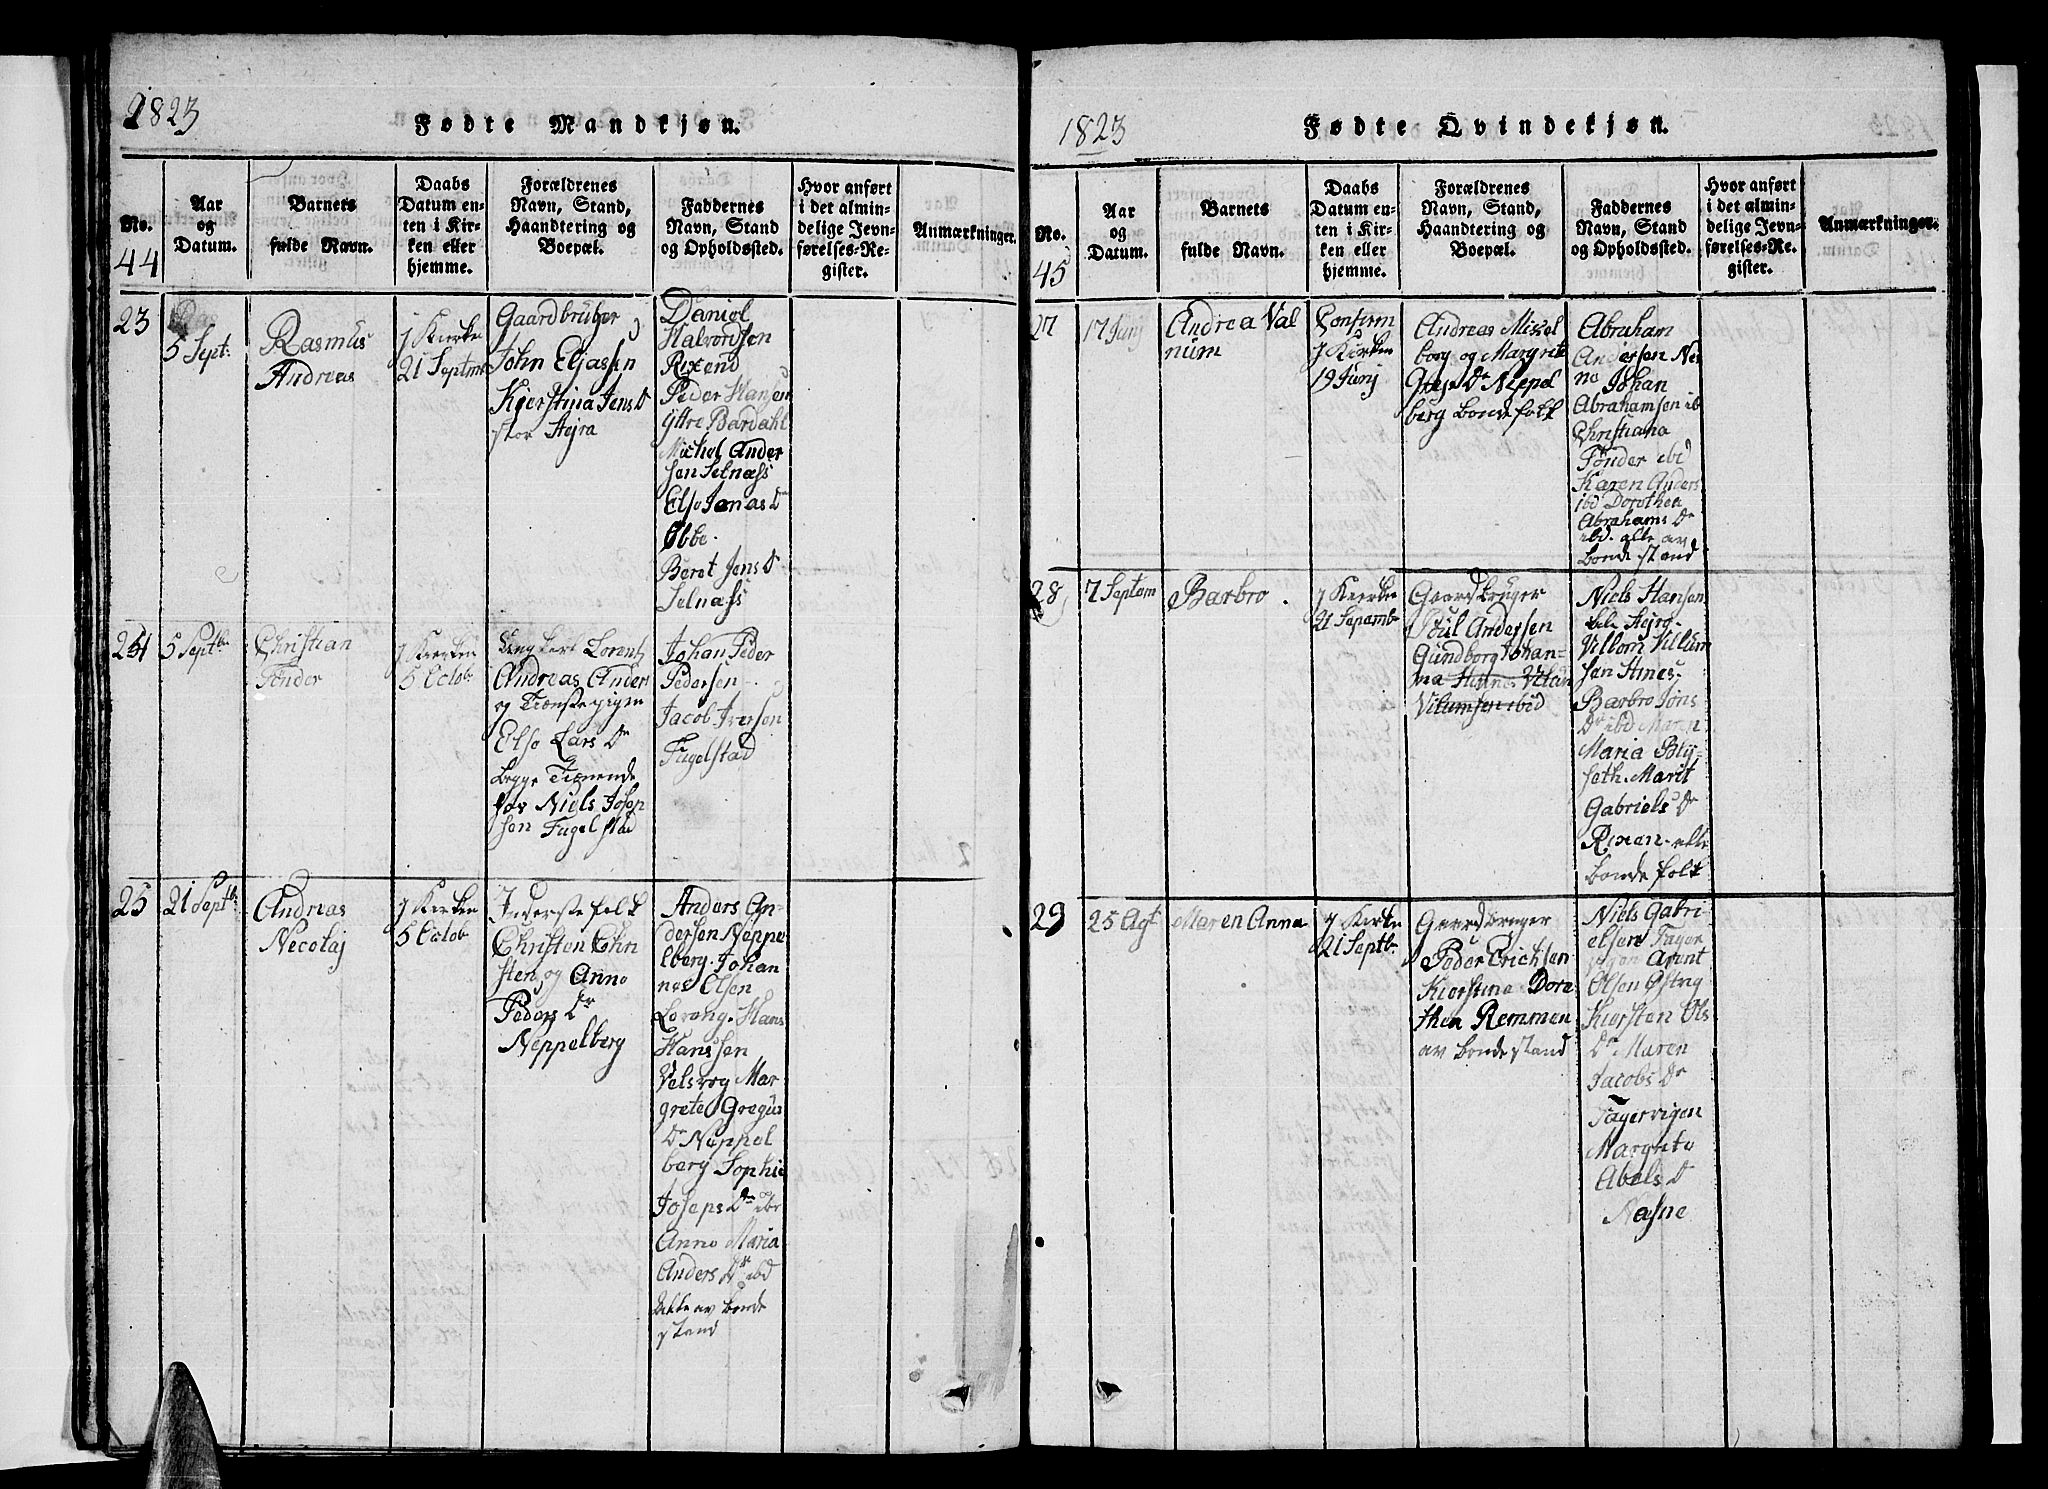 1823
Fødte Mandkjøn.
No.
44
Aar
og
Datum.
Barnets
fulde Navn.
Daabs
Datum en-
ten i Kir-
ken eller
hjemme.
Forældrenes
Navn, Stand,
Haandtering og
Boepæl.
Faddernes
Navn, Stand
og Opholdssted.
Hvor anført
i det almin-
delige Jevn-
førelses-Re-
gister.
Anmærkninger.
23
5 Sept:
Rasmus
Andreas
J Kirke
21 Septmb
Gaardbruger
John Eljassen
Kjerstina Jens Dr
stor Hejra
Daniel
Halvordsen
Rixend
Peder Hansen
Yttre Bardahl
Michel Ander
sen Selnæss
Else Jonas Dr
Ebbe.
Beret Jens Dr
Selnæss
24
5 Septbr
Christian
Tønder
J Kirken
5 Octob
Ungkarl Lorents
Andreas Ander
og Tieneste pigen
Else Lars Dr
begge Tienende
hos Niels Josep
sen Fugelstad
Johan Peder
Pedersen
Jacob Iversen
Fugelstad
25
21 Septb
Andreas
Necolaj
J Kirken
5 Octob
Inderste folk
Christen Chri
sten og Anne
Peders Dr
Neppelberg
Anders An-
dersen Neppe
lberg. Johan
nes Olsen
Lorang. Hans
Hanssen
Velsvog Mar
grete Gregus
Dr Neppel
berg Sophie
Joseps Dr ibe
Anne Maria
Anders Dr ibd
Alle av bonde
stand
1823
Fødte Qvindekjøn.
No.
45
Aar
og
Datum.
Barnets
fulde Navn.
Daabs
Datum en-
ten i Kir-
ken eller
hjemme.
Forældrenes
Navn, Stand,
Haandtering og
Boepæl.
Faddernes
Navn, Stand
og Opholdssted.
Hvor anført
i det almin-
delige Jevn-
førelses-Re-
gister.
Anmærkninger.
27
17 Junj
Andrea Val
num
Confirm
J Kirken
19 Junj
Andreas Missel
borg og Margrete
Grege Dr Neppel
berg bonde folk
Abraham
Andersen Nes
na Johan
Abrahamsen ib
Christiana
Tønder ibd
Karen Anders
ibd Dorothea
Abrahams Dr
ibd. alle av
bonde stand
28
7 Septem
Barbro
J Kirken
21 Sepemb
Gaardbruger
Poul Andersen
Gundborg Johan-
na
Vilumsen ibid
Niels Hansen
lile Hejra.
Villom Villum
sen
Barbro Jons
Dr ibd Maren
Maria Bly
seth. Marit
Gabriels Dr
Rixen. alle
bonde folk
29
25 Agt
Maren Anna
J Kirke
21 Septb.
Gaardbruger
Peder Erichsen
Kierstina Dore
thea Remmen
av bonde stand
Niels Gabri
elsen Fager
vigen Arent
Olsen Østvig
Kiersten Ols
Dr Maren
Jacobs Dr
Fagervigen
Margrete
Abels Dr
Næsne